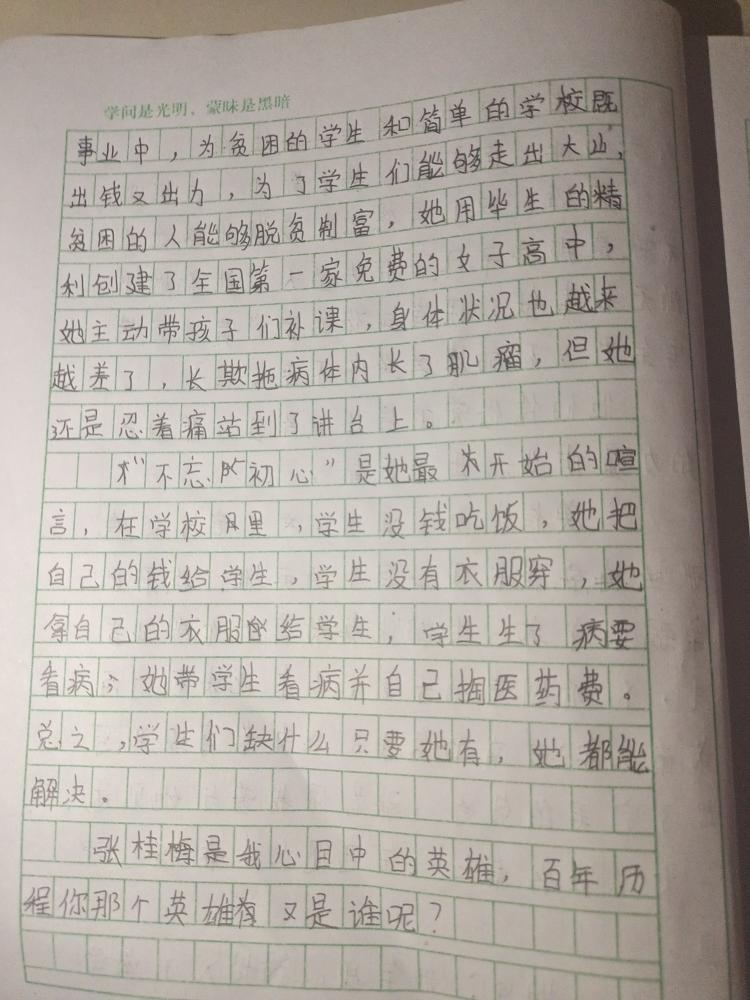 学问是光明，蒙昧是黑暗
事业中，为贫困的学生和简单的学校既
出钱又出力，为了学生们能够走出大山，
贫困的人能够脱贫制富，她用毕生的精
利创建了全国第一家免费的女子高中，
她主动带孩子们补课，身体状况也越来
越差了，长欺拖病体内长了肌瘤，但她
还是忍着痛站到了讲台上。
“不忘初心”是她最开始的喧
言，在学校里，学生没钱吃饭，她把
自己的钱给学生，学生没有衣服穿，她
拿自己的衣服给学生，学生生了病要
看病，她带学生看病并自己掏医药费。
总之，学生们缺什么只要她有，她都能
解决。
张桂梅是我心目中的英雄，百年历
程你那个英雄又是谁呢？